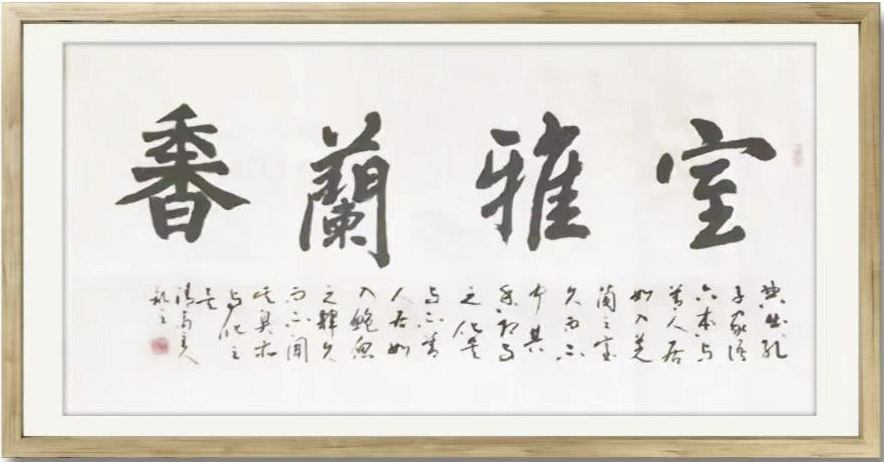 室雅蘭香
典出孔
子家语
六本与
善人居
如入芝
蘭之室
久而不
其
香即与
之化矣
与不善
人居如
入鲍魚
之肆久
而不闻
其臭亦
与化之
矣